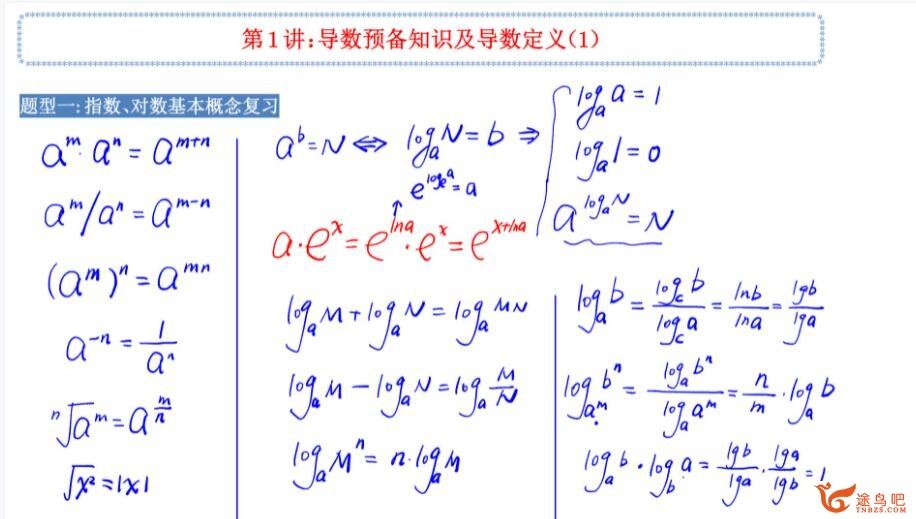 第1讲:导数预备知识及导数定义(1)
题型一:指数、对数基本概念复习
a^m · a^n = a^{m+n}
a^m / a^n = a^{m-n}
(a^m)^n = a^{mn}
a^{-n} = 1/a^n
ⁿ√a^m = a^{m/n}
√x² = |x|
a^b = N ⇔ log_a N = b ⇒
log_a a = 1
log_a 1 = 0
a^{log_a N} = N
e^{log_e a} = a
↑
a·e^x = e^{lna}·e^x = e^{x+lna}
log_a M + log_a N = log_a MN
log_a M − log_a N = log_a M/N
log_a M^n = n·log_a M
log_a b = log_c b / log_c a = lnb / lna = lgb / lga
log_{a^m} b^n = log_a b^n / log_a a^m = n/m · log_a b
log_a b · log_b a = lgb/lga · lga/lgb = 1
途鸟吧
TNBZS.COM